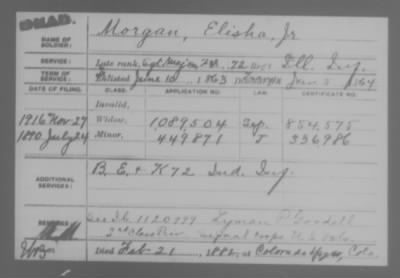 DEAD.
NAME OF SOLDIER: Morgan, Elisha, Jr
SERVICE: Late rank, Sgt Maj 72 Ill. Inf.
TERM OF SERVICE: Enlisted June 10, 1863 Jan 3, 1864
DATE OF FILING. CLASS. APPLICATION NO. LAW. CERTIFICATE NO.
Invalid,
1916 Nov 27 Widow, 1,089,504 854,575
1890 July 24 Minor, 449871 J 336986
ADDITIONAL SERVICES: B, E, & K 72 Ind. Inf.
REMARKS: 1120777 Lyman P Goodell
2nd Class Priv. Signal Corps U.S. Vols.
Died Feb 21, 188 at Colorado Spgs, Colo.